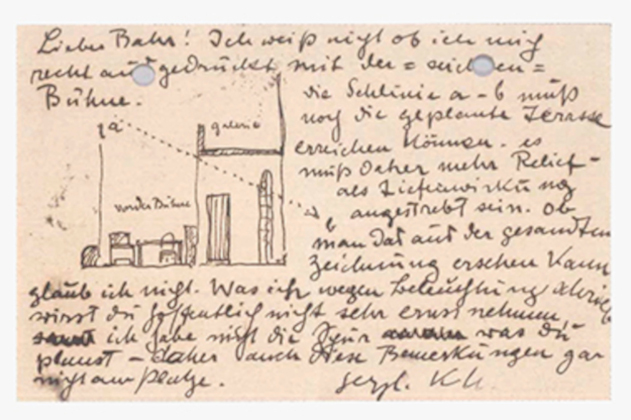 Lieber Bahr! Ich weiß nicht ob ich mich
recht ausgedrückt mit der = =
Bühne.
die Sehlinie a - b muß
noch die geplante Terasse
erreichen können. es
muß daher mehr Relief-
als Tiefenwirkung
angestrebt sein. Ob
man das aus der gesandten
Zeichnung ersehen kann
a
galerie
vordere Bühne
b
glaub ich nicht. Was ich wegen beleuchtung
wirst du hoffentlich nicht sehr ernst nehmen
ich habe nicht die Spur was du
planst - daher auch diese Bemerkungen gar
nicht am Platze.